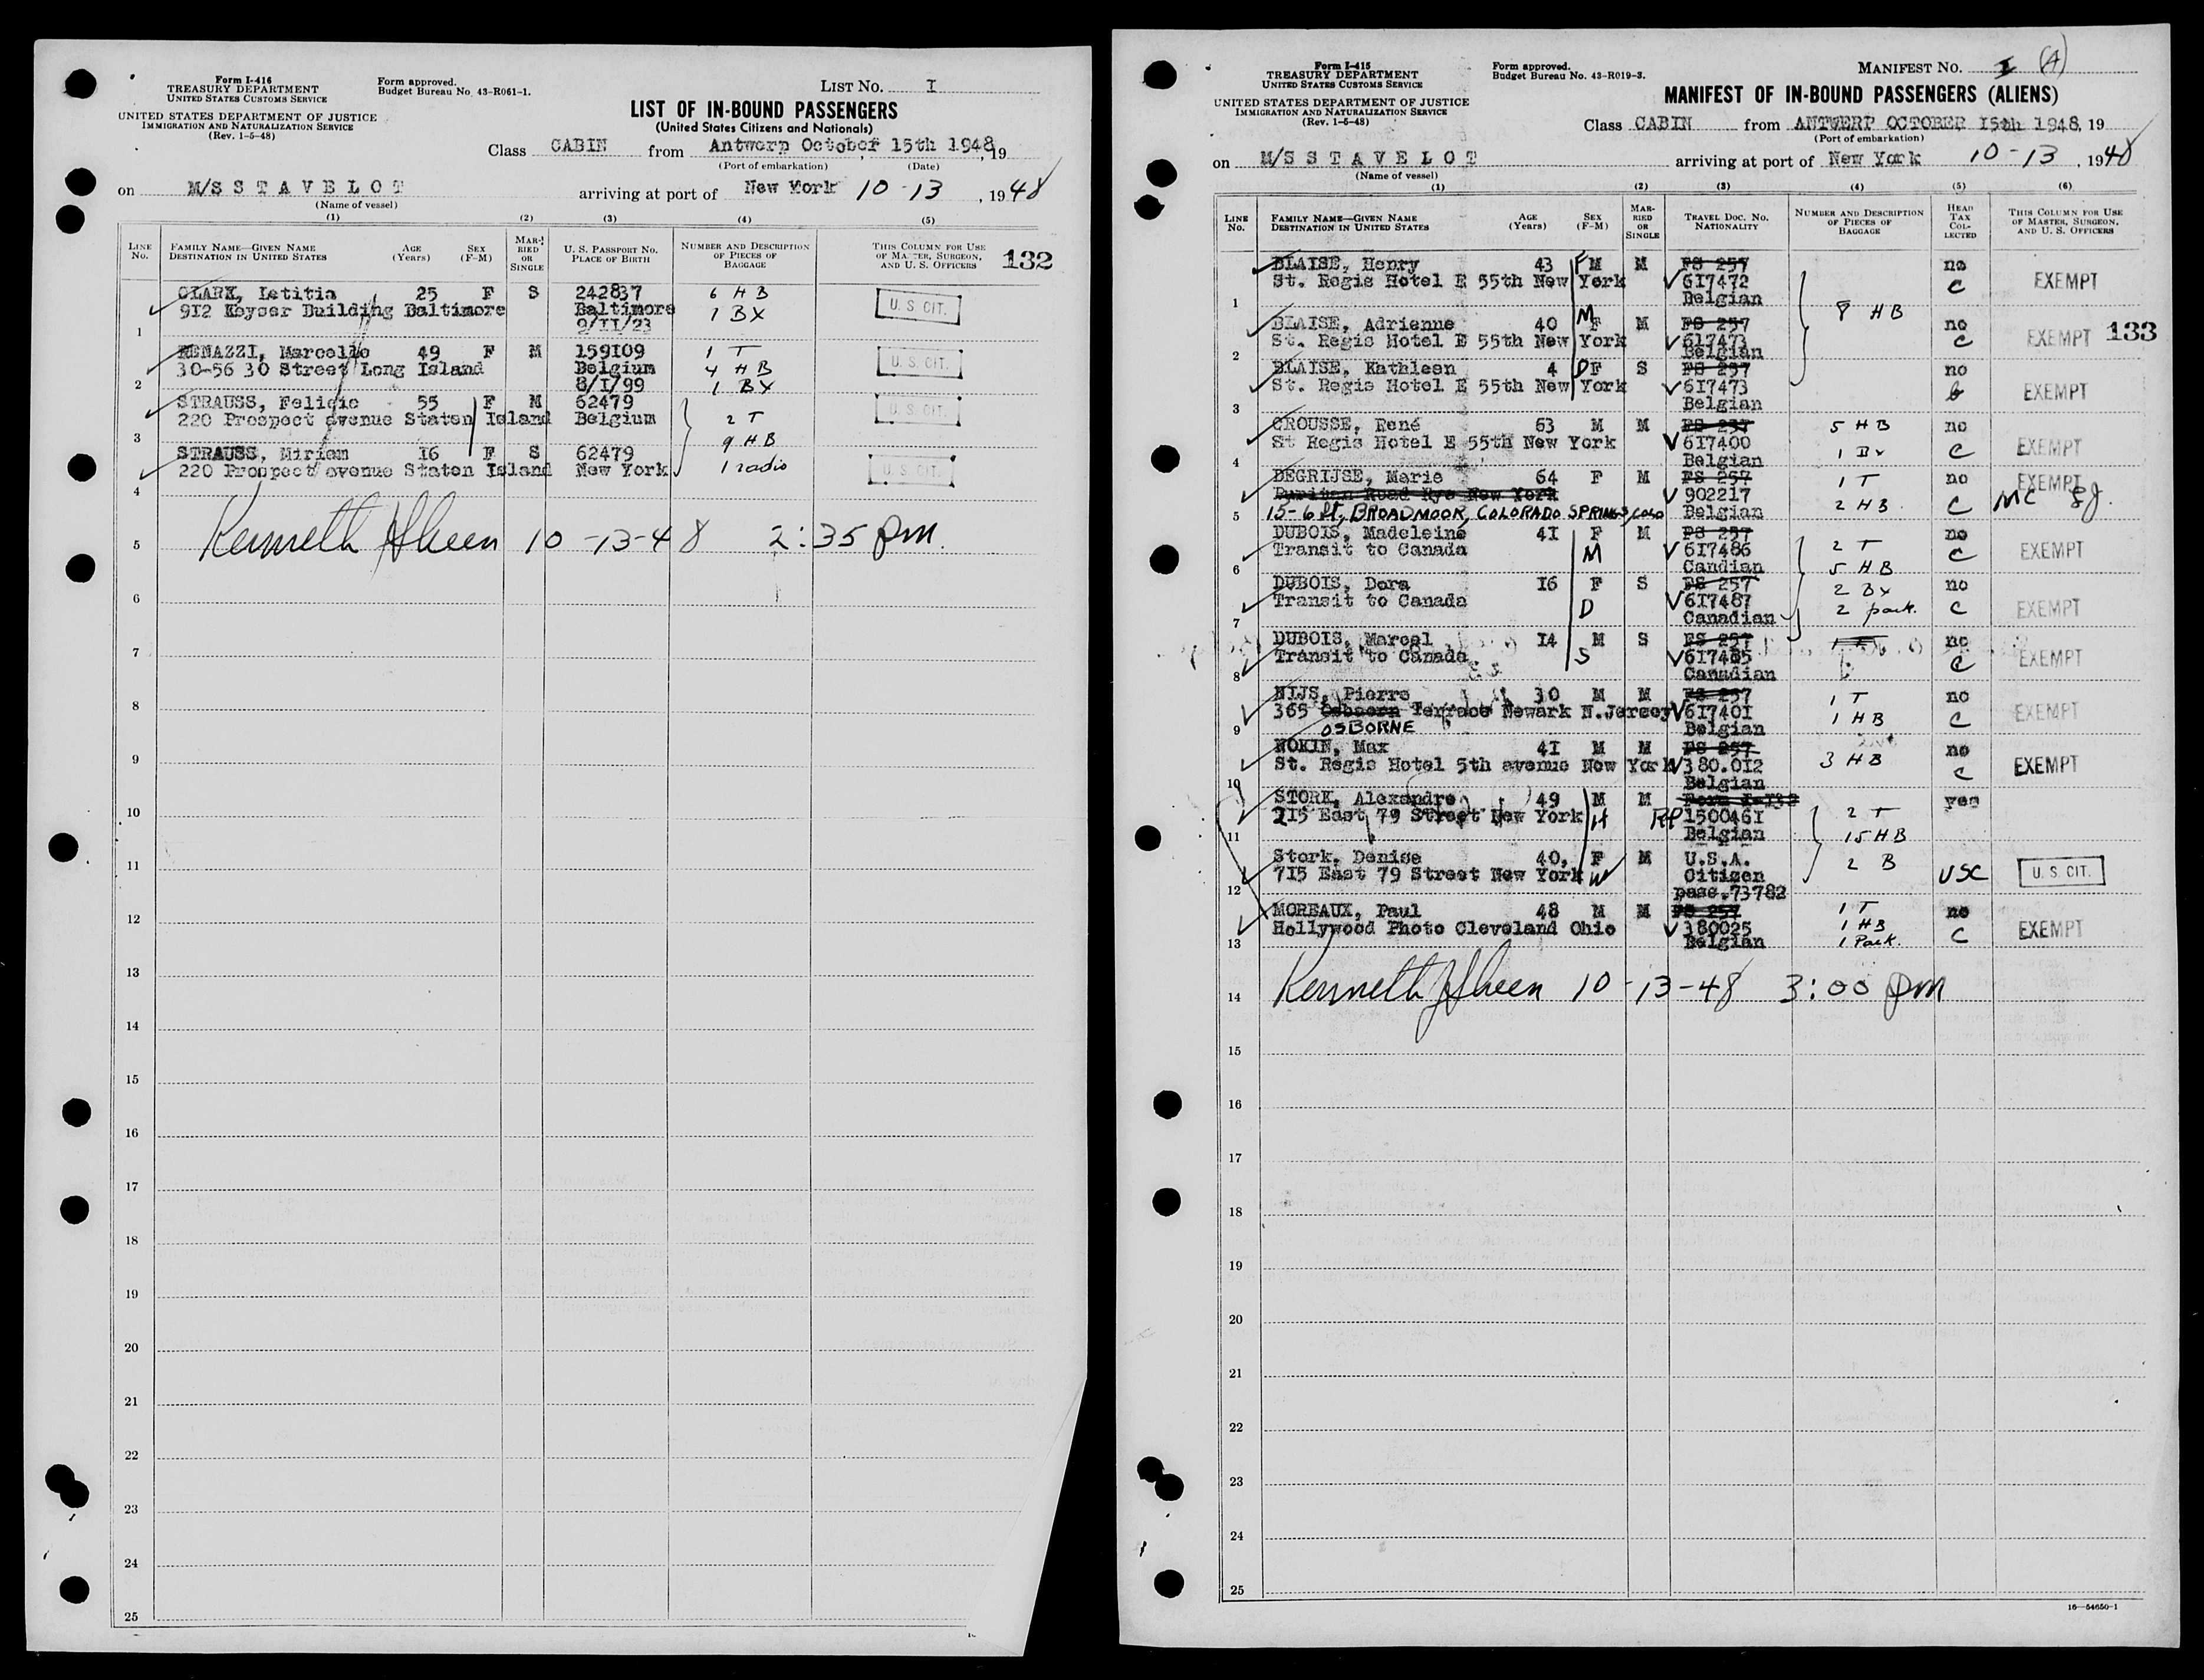 Form I-416
TREASURY DEPARTMENT
UNITED STATES CUSTOMS SERVICE
UNITED STATES DEPARTMENT OF JUSTICE
IMMIGRATION AND NATURALIZATION SERVICE
(Rev. 1-5-48)
Form approved.
Budget Bureau No. 43-R061-1.
LIST NO. I
LIST OF IN-BOUND PASSENGERS
(United States Citizens and Nationals)
Class CABIN from Antwerp October 15th 1948, 19
(Port of embarkation) (Date)
on M/S S T A V E L O T arriving at port of New York 10-13, 1948
(Name of vessel)
(1) (2) (3) (4) (5)
LINE No. FAMILY NAME—GIVEN NAME DESTINATION IN UNITED STATES AGE (Years) SEX (F-M) MARRIED OR SINGLE U. S. PASSPORT NO. PLACE OF BIRTH NUMBER AND DESCRIPTION OF PIECES OF BAGGAGE THIS COLUMN FOR USE OF MASTER, SURGEON, AND U. S. OFFICERS 132
CLARK, Letitia 25 F S 242837 6 H B
912 Keyser Building Baltimore Baltimore 1 BX U. S. CIT.
1 9/II/23
RENAZZI, Marcello 49 F M 159109 1 T
30-56 30 Street Long Island Belgium 4 H B U. S. CIT.
2 8/I/99 1 BX
STRAUSS, Felicie 55 F M 62479 U. S. CIT.
220 Prospect avenue Staten Island Belgium 2 T
3 9 H B
STRAUSS, Miriam 16 F S 62479
220 Prospect avenue Staten Island New York 1 radio U. S. CIT.
4
5 Kenneth Sheen 10-13-48 2:35 pm.
6
7
8
9
10
11
12
13
14
15
16
17
18
19
20
21
22
23
24
25
Form I-415
TREASURY DEPARTMENT
UNITED STATES CUSTOMS SERVICE
UNITED STATES DEPARTMENT OF JUSTICE
IMMIGRATION AND NATURALIZATION SERVICE
(Rev. 1-5-48)
Form approved.
Budget Bureau No. 43-R019-3.
MANIFEST NO. I (A)
MANIFEST OF IN-BOUND PASSENGERS (ALIENS)
Class CABIN from ANTWERP OCTOBER 15th 1948, 19
(Port of embarkation)
on M/S S T A V E L O T arriving at port of New York 10-13, 1948
(Name of vessel)
(1) (2) (3) (4) (5) (6)
LINE No. FAMILY NAME—GIVEN NAME DESTINATION IN UNITED STATES AGE (Years) SEX (F-M) MARRIED OR SINGLE TRAVEL DOC. NO. NATIONALITY NUMBER AND DESCRIPTION OF PIECES OF BAGGAGE HEAD TAX COLLECTED THIS COLUMN FOR USE OF MASTER, SURGEON, AND U. S. OFFICERS
BLAISE, Henry 43 F M M FS 257 no
St. Regis Hotel E 55th New York 617472 c EXEMPT
1 Belgian 8 HB
BLAISE, Adrienne 40 M F M FS 257 no
St. Regis Hotel E 55th New York 617473 c EXEMPT 133
2 Belgian
BLAISE, Kathleen 4 D F S FS 257 no
St. Regis Hotel E 55th New York 617473 EXEMPT
3 Belgian
CROUSSE, René 63 M M FS 257 5 H B no
St Regis Hotel E 55th New York 617400 c EXEMPT
4 Belgian 1 Bx
DEGRIJSE, Marie 64 F M FS 257 1 T no EXEMPT
Puritan Road Rye New York 902217 2 HB c MC
5 15-6 St, BROADMOOR, COLORADO SPRINGS, COLO Belgian
DUBOIS, Madeleine 41 F M FS 257 no
Transit to Canada M 617486 2 T c EXEMPT
6 Candian 5 HB
DUBOIS, Dora 16 F S FS 257 2 Bx no
Transit to Canada D 617487 2 pack. c EXEMPT
7 Canadian
DUBOIS, Marcel 14 M S FS 257 no
Transit to Canada S 617485 c EXEMPT
8 Canadian
NIJS, Pierre 30 M M FS 257 1 T no
365 Osboern Terrace Newark N.Jersey 617401 1 HB c EXEMPT
9 OSBORNE Belgian
NOKIN, Max 41 M M FS 257 no
St. Regis Hotel 5th avenue New York 380.012 3 HB c EXEMPT
10 Belgian
STORK, Alexandre 49 M M Form I-132 yes
215 East 79 Street New York H RP 1500461 2 T
11 Belgian 15 HB
Stork, Denise 40, F M U.S.A. 2 B
715 East 79 Street New York W Citizen USC U. S. CIT.
12 pass.73782
MOREAUX, Paul 48 M M FS 257 1 T no
Hollywood Photo Cleveland Ohio 380025 1 HB c EXEMPT
13 Belgian 1 Pack.
14 Kenneth Sheen 10-13-48 3:00 pm
15
16
17
18
19
20
21
22
23
24
25
16—54650-1